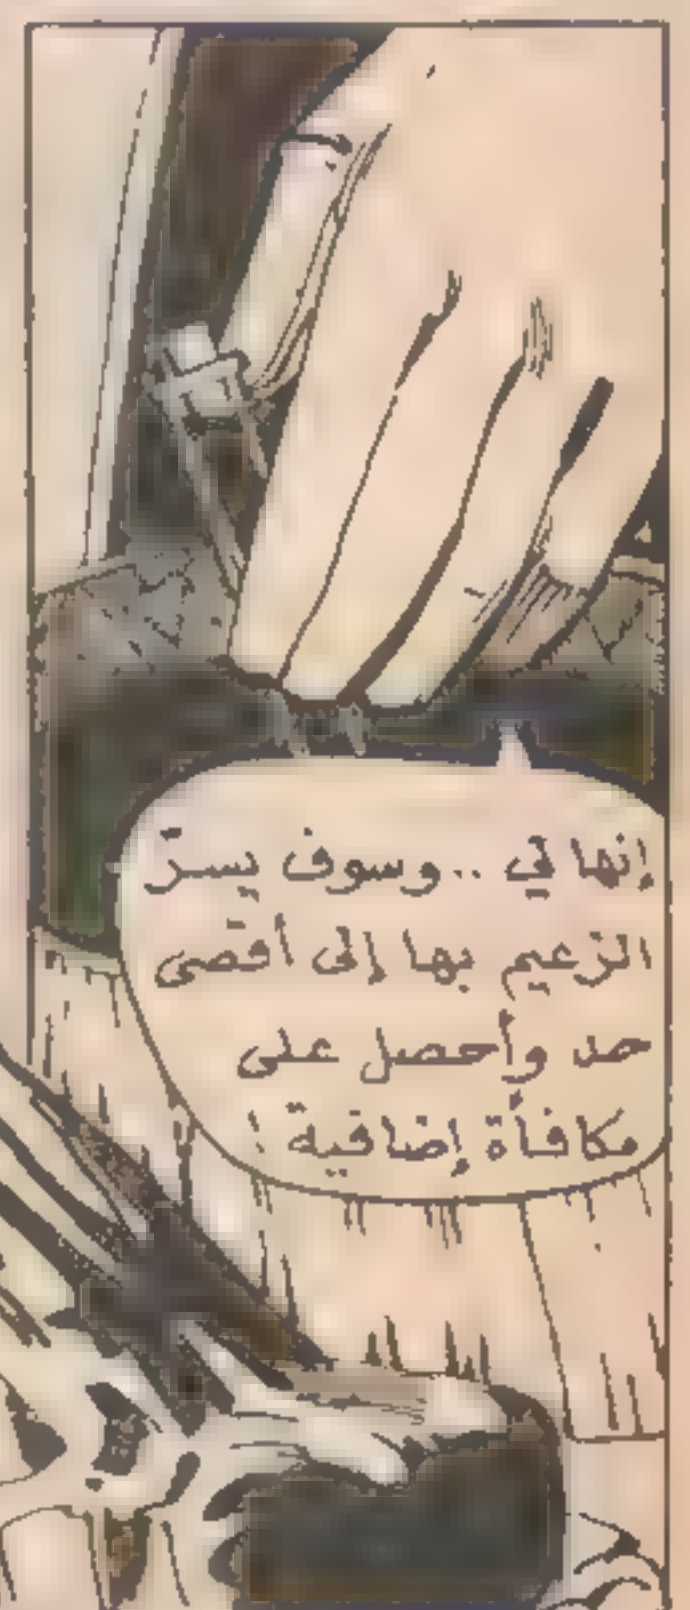 إنها لي ..وسوف يسرّ
الزعيم بها إلى أقصى
حد وأحصل على
مكافأة إضافية !